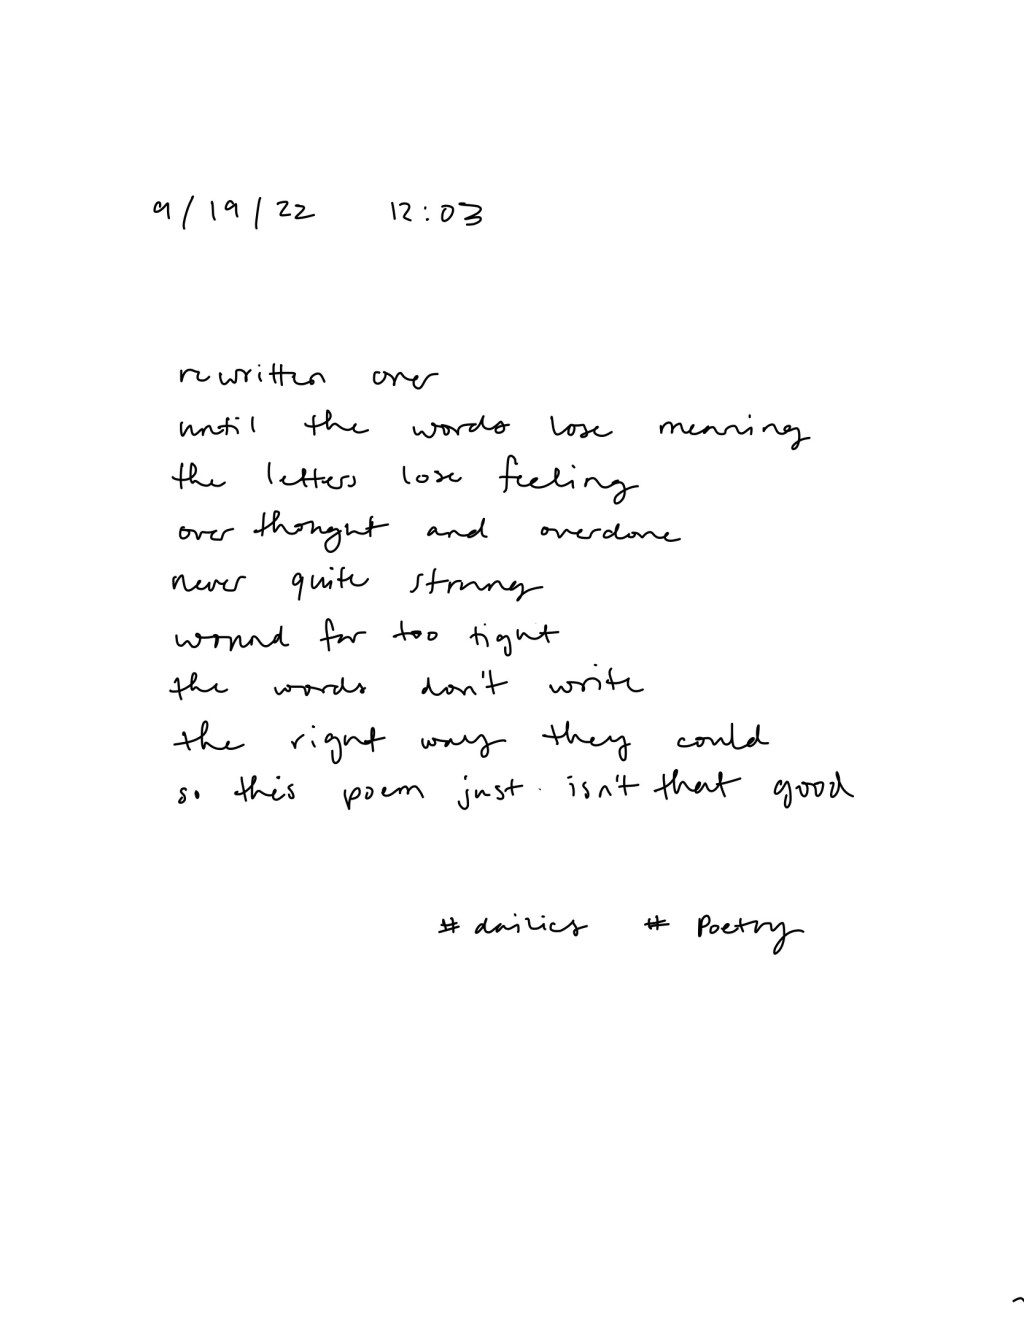 9/19/22 12:03
rewritten over
until the words lose meaning
the letters lose feeling
over thought and overdone
never quite strung
wound far too tight
the words don't write
the right way they could
so this poem just isn't that good
# dailies # Poetry